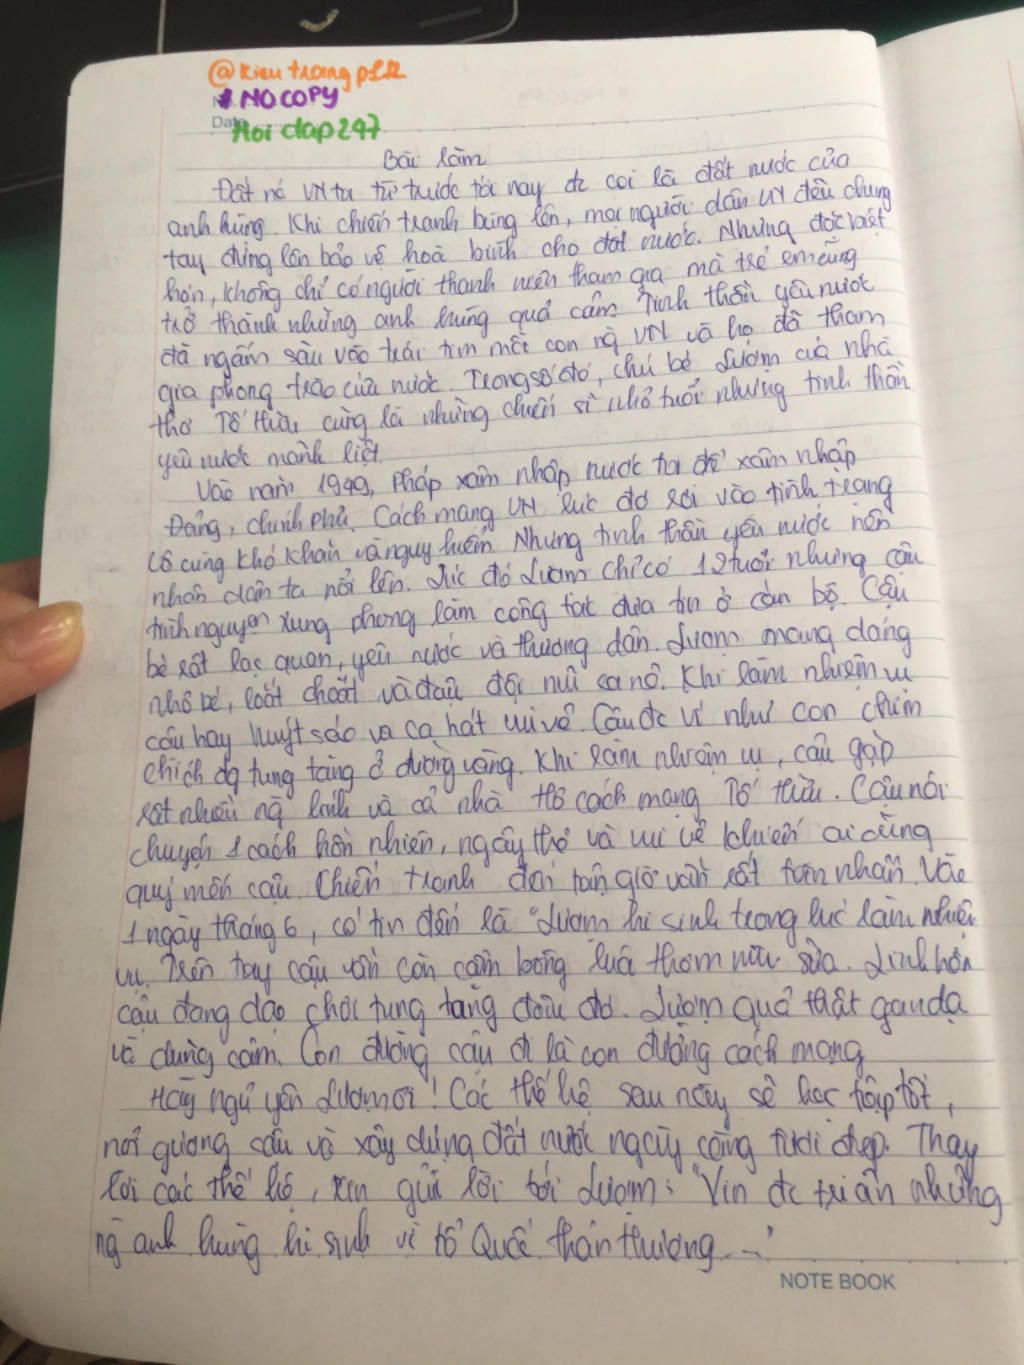 @kieutrangp512
# NO COPY
Date
Hoi dap247
Bài làm
Đất nc VN ta từ trước tới nay đc coi là đất nước của
anh hùng. Khi chiến tranh bùng lên, mọi người dân VN đều chung
tay đứng lên bảo vệ hoà bình cho đất nước. Nhưng đặc biệt
hơn, không chỉ có người thanh niên tham gia mà trẻ em cũng
trở thành những anh hùng quả cảm. Tinh thần yêu nước
đã ngấm sâu vào trái tim mỗi con ng VN và họ đã tham
gia phong trào của nước. Trong số đó, chú bé Lượm của nhà
thơ Tố Hữu cũng là những chiến sĩ nhỏ tuổi nhưng tinh thần
yêu nước mãnh liệt.
Vào năm 1949, Pháp xâm nhập nước ta để xâm nhập
Đảng, chính phủ. Cách mạng VN lúc đó rơi vào tình trạng
vô cùng khó khăn và nguy hiểm. Nhưng tinh thần yêu nước nên
nhân dân ta nổi lên. Lúc đó Lượm chỉ có 12 tuổi nhưng cậu
tình nguyện xung phong làm công tác đưa tin ở cán bộ. Cậu
bé rất lạc quan, yêu nước và thương dân. Lượm mang dáng
nhỏ bé, loắt choắt và đầu đội mũ ca nô. Khi làm nhiệm vụ
cậu hay huýt sáo và ca hát vui vẻ. Cậu đc ví như con chim
chích đg tung tăng ở đường vàng. Khi làm nhiệm vụ, cậu gặp
rất nhiều ng lính và cả nhà thơ cách mạng Tố Hữu. Cậu nói
chuyện 1 cách hồn nhiên, ngây thơ và vui vẻ khiến ai cũng
quý mến cậu. Chiến tranh đến tận giờ vẫn rất tàn nhẫn. Vào
1 ngày tháng 6, có tin đến là "Lượm hi sinh trong lúc làm nhiệm
vụ. Trên tay cậu vẫn còn cầm bông lúa thơm mùi sữa. Linh hồn
cậu đang dạo chơi tung tăng đâu đó. Lượm quả thật gan dạ
và dũng cảm. Con đường cậu đi là con đường cách mạng
Hãy ngủ yên Lượm ơi! Các thế hệ sau này sẽ học tập tốt,
noi gương cậu và xây dựng đất nước ngày càng tươi đẹp. Thay
lời các thế hệ, xin gửi lời tới Lượm: "Xin đc tri ân những
ng anh hùng hi sinh vì tổ Quốc thân thương..."
NOTE BOOK